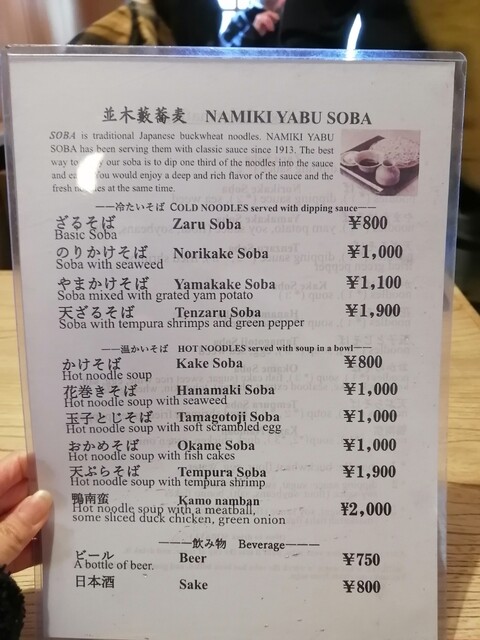 並木藪蕎麦 NAMIKI YABU SOBA
SOBA is traditional Japanese buckwheat noodles. NAMIKI YABU
SOBA has been serving them with classic sauce since 1913. The best
way to our soba is to dip one third of the noodles into the sauce
and You would enjoy a deep and rich flavor of the sauce and the
fresh noodles at the same time.
――冷たいそば COLD NOODLES served with dipping sauce――
ざるそば Zaru Soba ¥800
Basic Soba
のりかけそば Norikake Soba ¥1,000
Soba with seaweed
やまかけそば Yamakake Soba ¥1,100
Soba mixed with grated yam potato
天ざるそば Tenzaru Soba ¥1,900
Soba with tempura shrimps and green pepper
――温かいそば HOT NOODLES served with soup in a bowl――
かけそば Kake Soba ¥800
Hot noodle soup
花巻きそば Hanamaki Soba ¥1,000
Hot noodle soup with seaweed
玉子とじそば Tamagotoji Soba ¥1,000
Hot noodle soup with soft scrambled egg
おかめそば Okame Soba ¥1,000
Hot noodle soup with fish cakes
天ぷらそば Tempura Soba ¥1,900
Hot noodle soup with tempura shrimp
鴨南蛮 Kamo namban ¥2,000
Hot noodle soup with a meatball,
some sliced duck chicken, green onion
―――飲み物 Beverage―――
ビール Beer ¥750
A bottle of beer.
日本酒 Sake ¥800